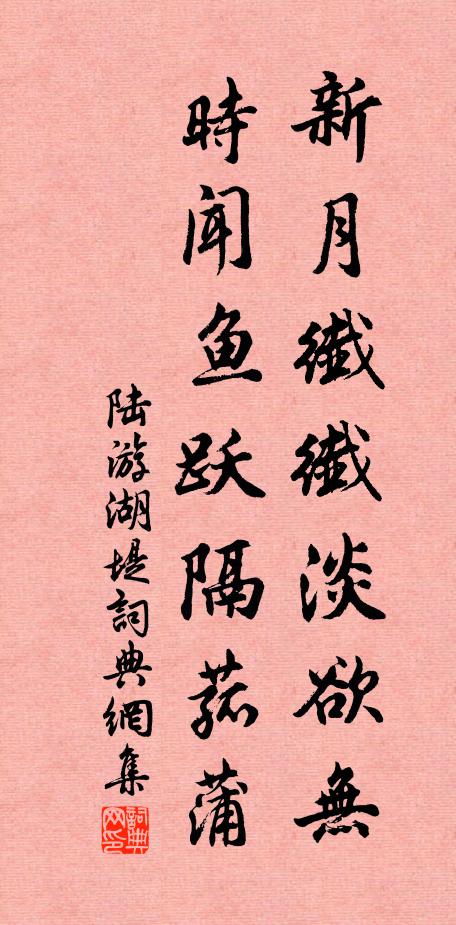 新月纖纖淡欲無
時闻鱼跃隔菰蒲
陆游湖堤詞典網集
詞典网印